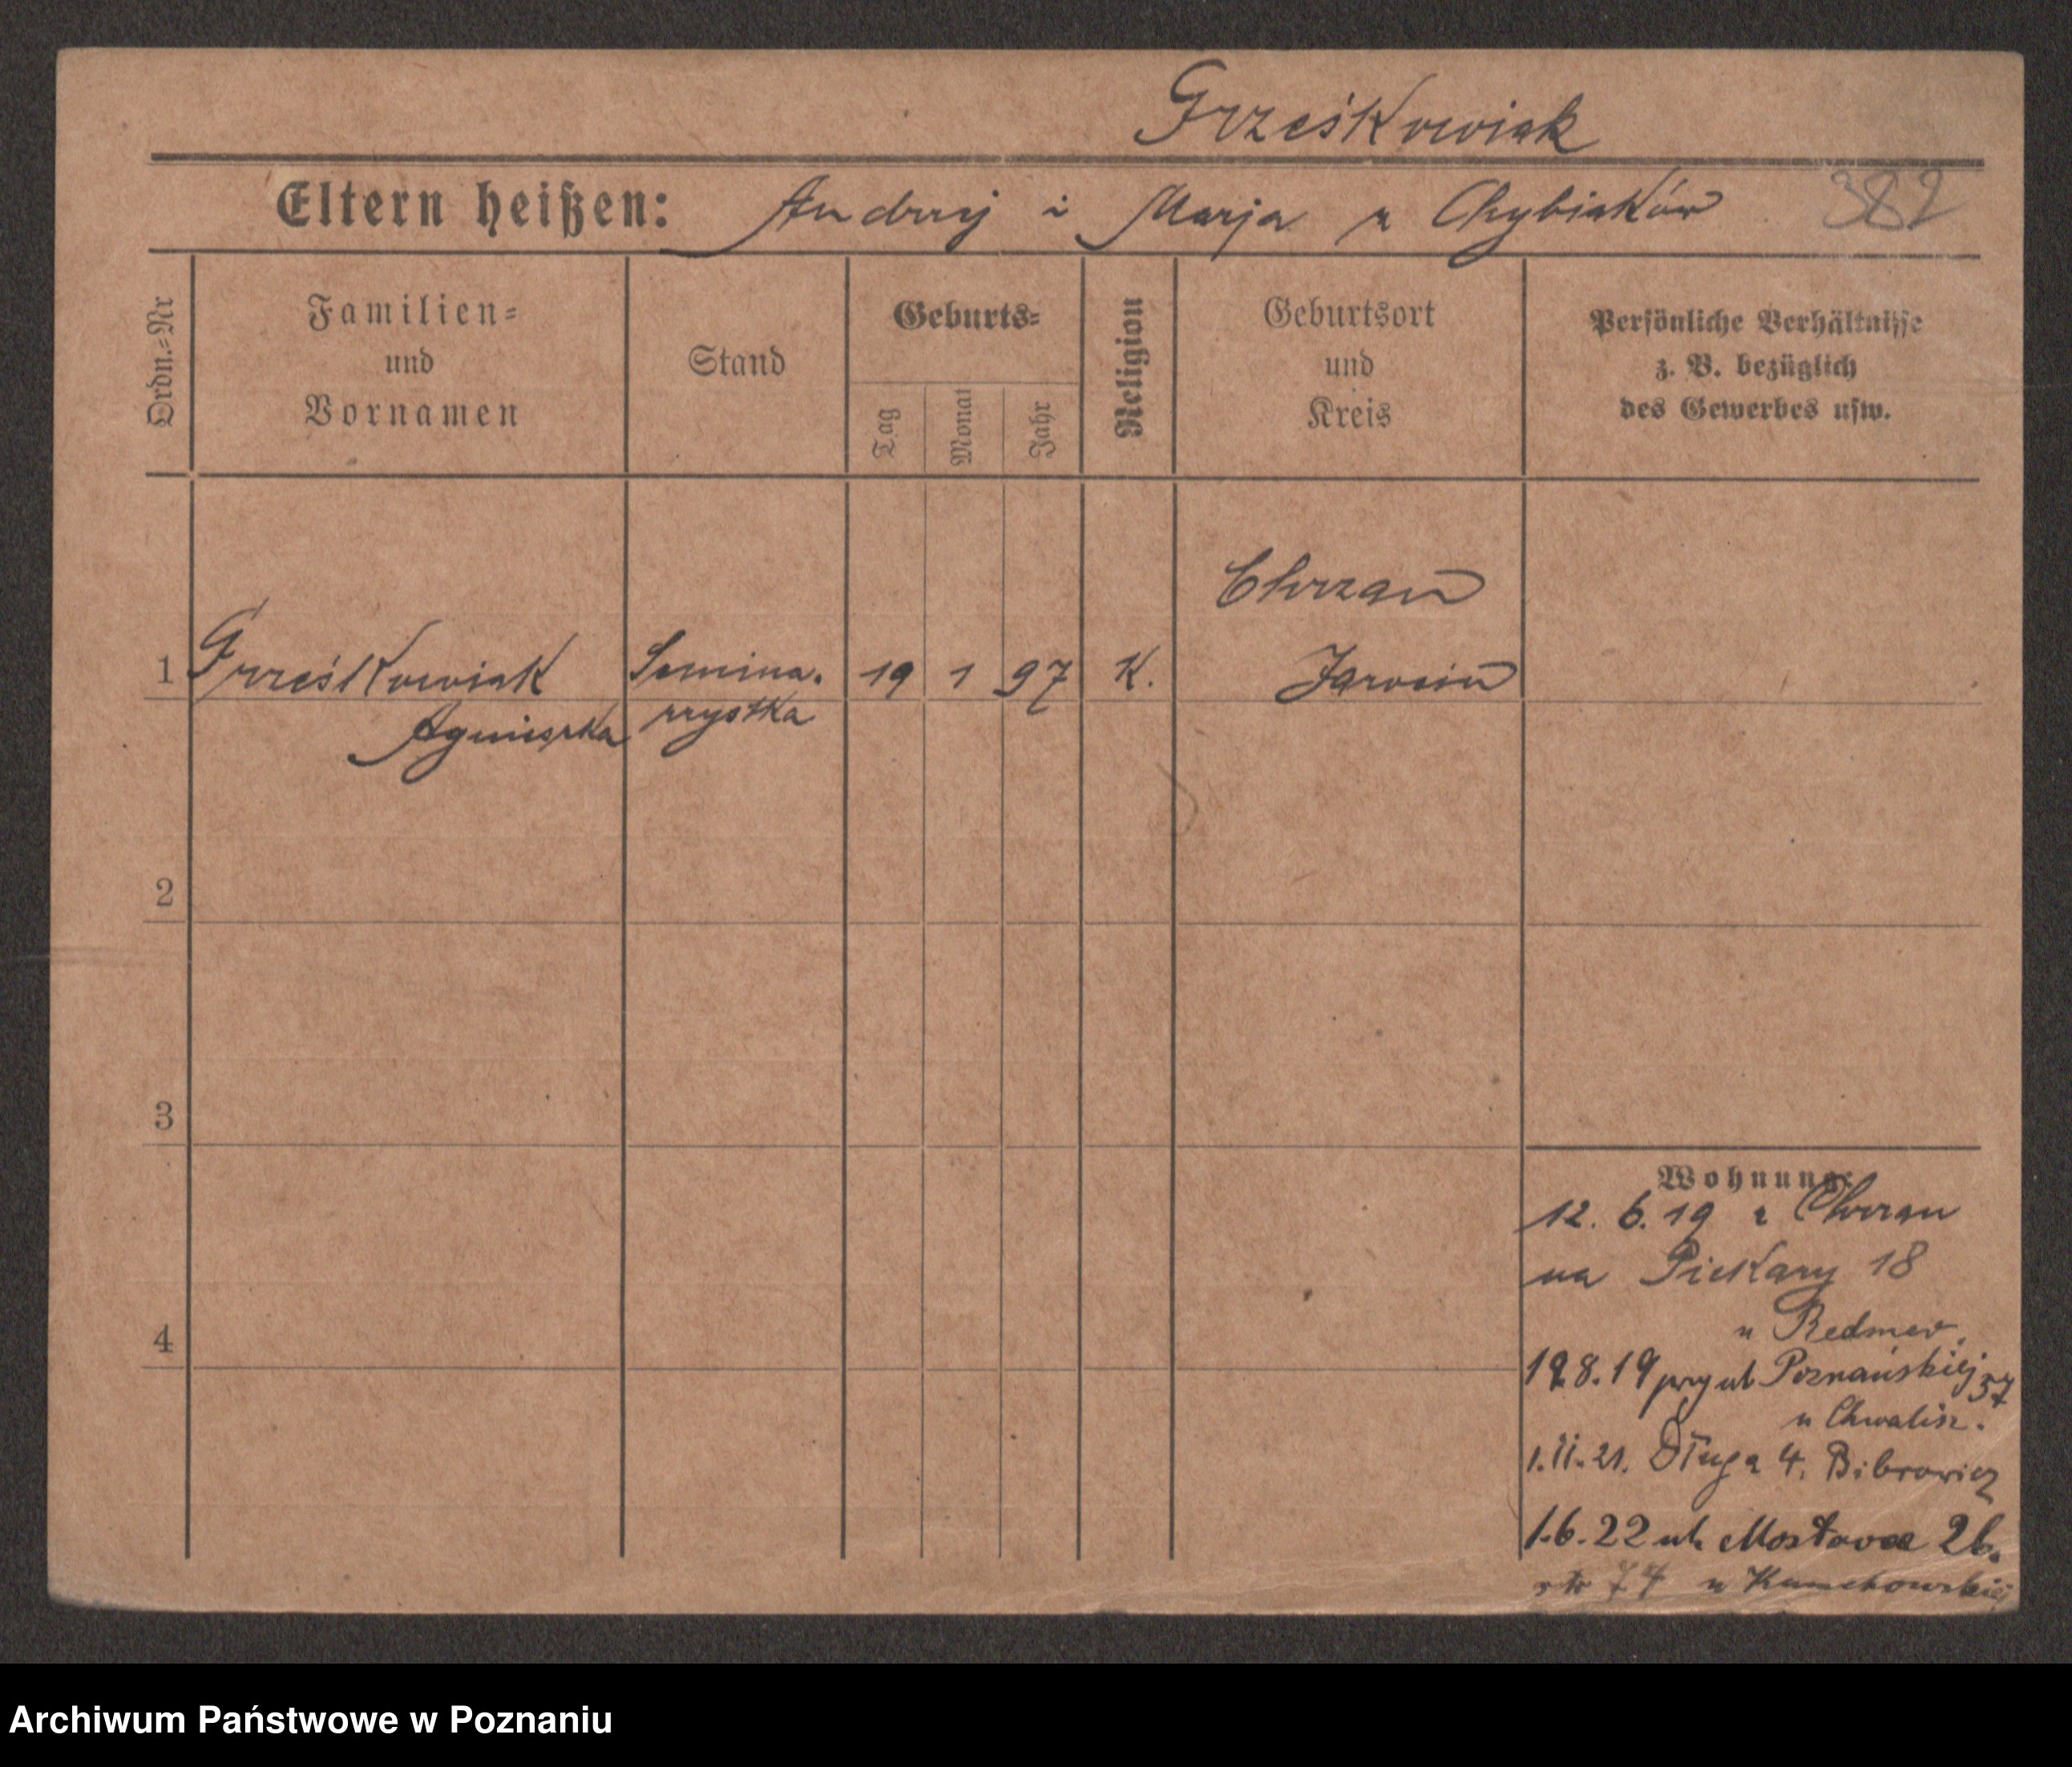 Grześkowiak
Eltern heißen: Andrzej i Marja z Chybiaków 382
Ordn.=Nr
Familien=
und
Vornamen
Stand
Geburts=
Tag
Monat
Jahr
Religion
Geburtsort
und
Kreis
Persönliche Verhältnisse
z. B. bezüglich
des Gewerbes usw.
Chrzan
1 Grześkowiak Semina. 19 1 97 K. Jarocin
Agnieszka rzystka
2
3
4
Wohnung:
12. 6. 19 z Chrzan
na Piekary 18
u Redmer.
19.8.19 przy ul Poznańskiej 57
u Chwalisz.
1.II.21. Długa 4. Bibrowicz
1.6.22 ul. Mostowa 26.
u
Archiwum Państwowe w Poznaniu